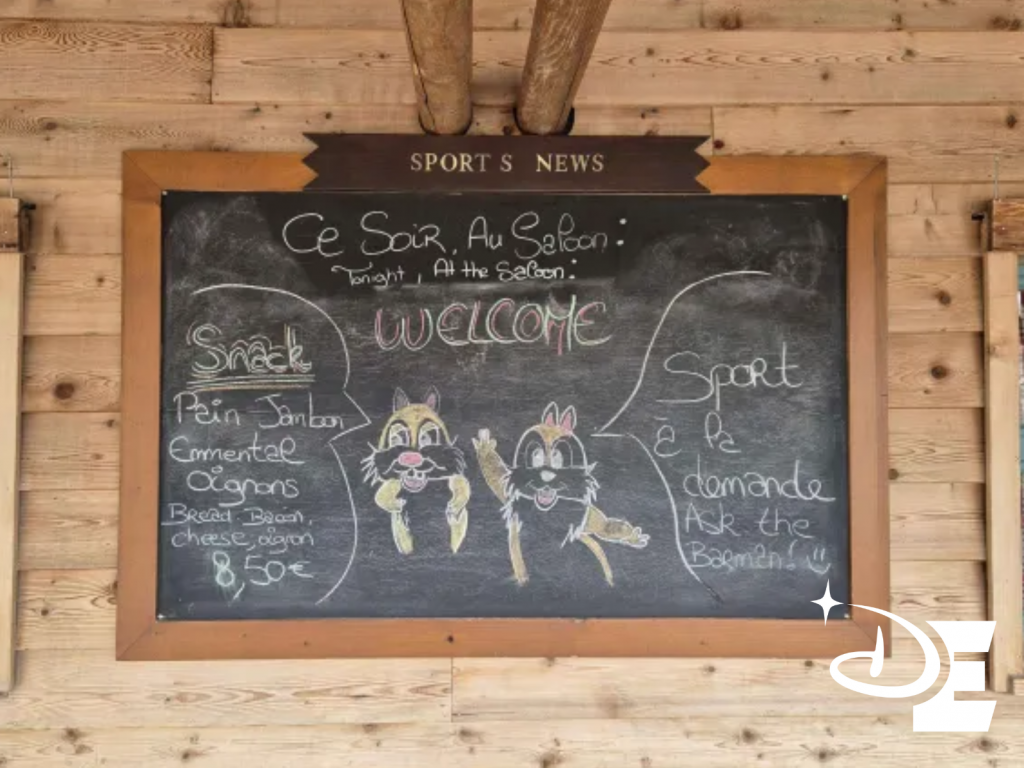 SPORTS NEWS
Ce Soir, Au Saloon:
Tonight, At the Saloon:
WELCOME
Snack
Pain Jambon
Emmental
Oignons
Bread Bacon,
cheese, oignon
8,50€
Sport
à la
demande
Ask the
Barman!
DE